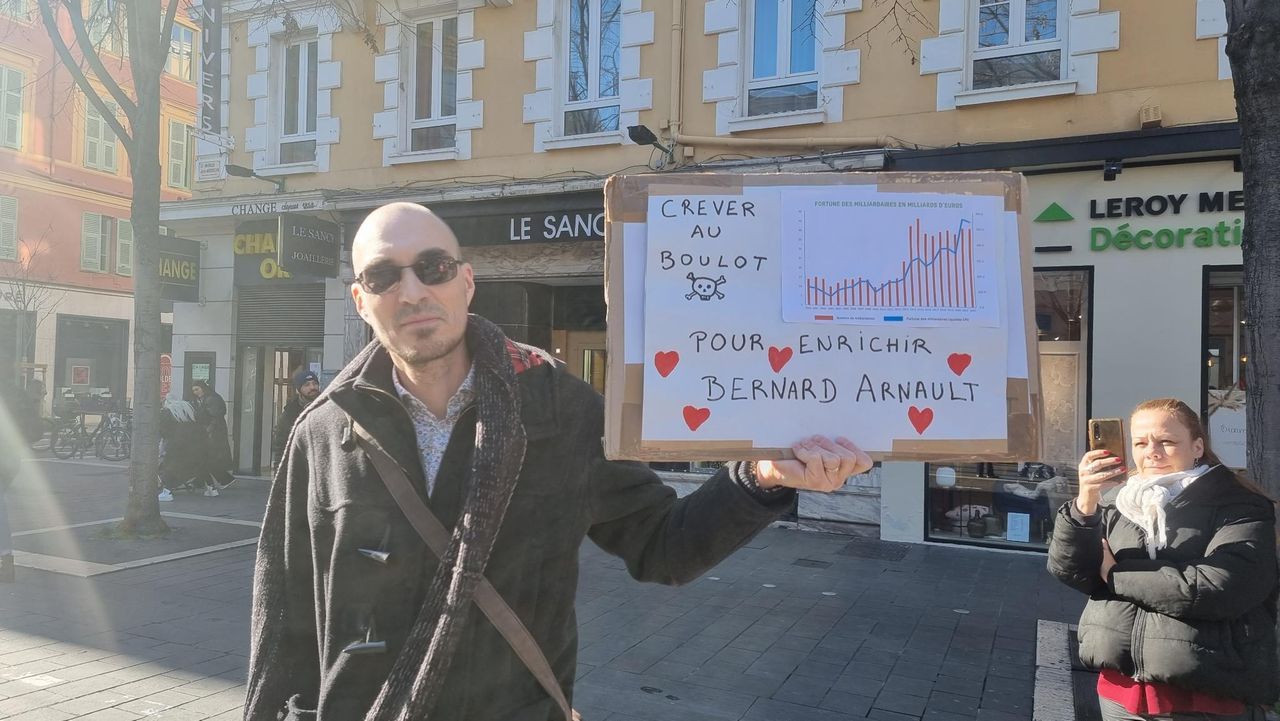 CHANGE depuis
LE SANCY
JOAILLERIE
CHANGE
LE SANC
LEROY ME
Décorati
CREVER
AU
BOULOT
FORTUNE DES MILLIARDAIRES EN MILLIARDS D'EUROS
POUR ENRICHIR
BERNARD ARNAULT